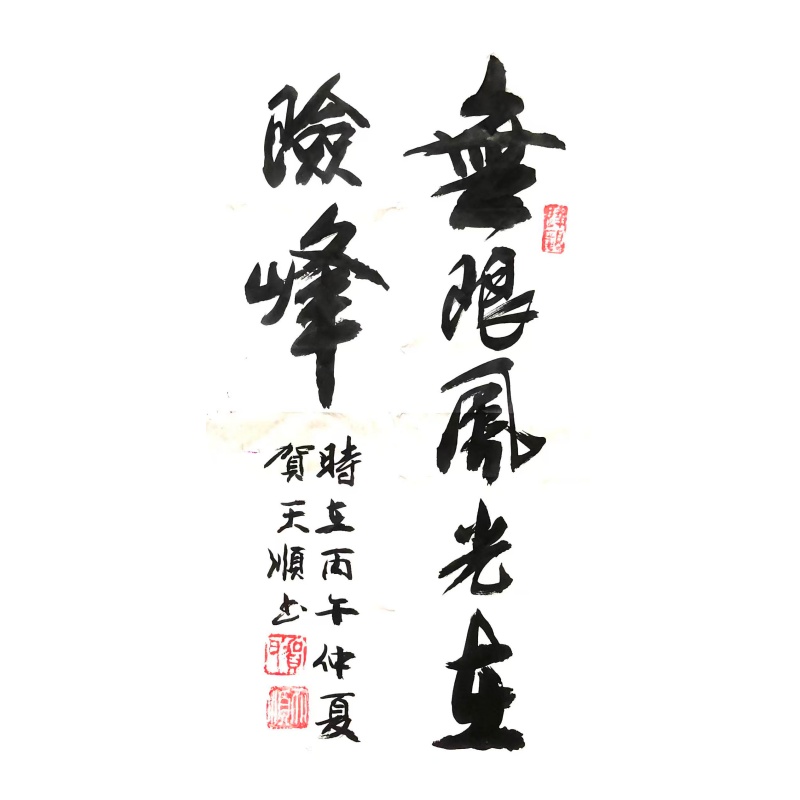 無限風光在
險峰
時在丙午仲夏
賀天順书